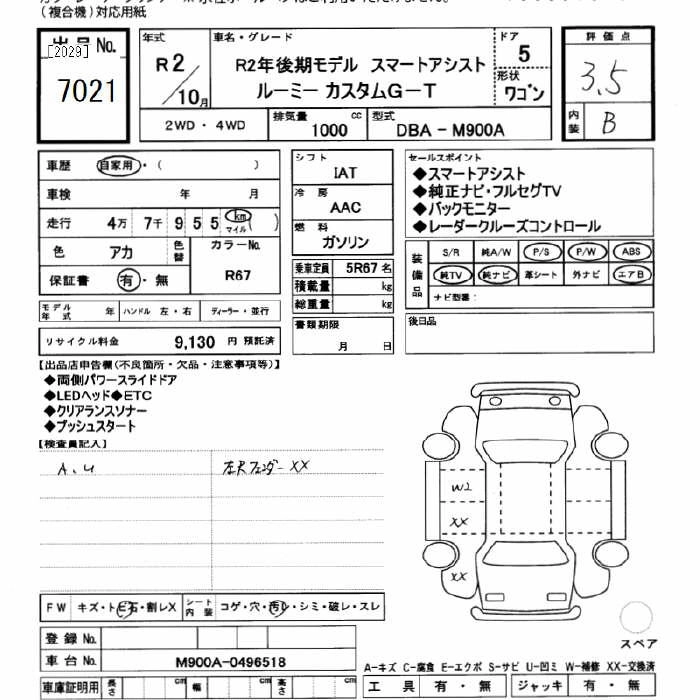 (複合機)対応用紙
出品No. [2029] 7021
年式 R2/10月
車名・グレード R2年後期モデル スマートアシスト
ルーミー カスタムG-T
ドア 5
形状 ワゴン
評価点 3.5
内装 B
2WD・4WD 排気量 1000 cc 型式 DBA-M900A
車歴 自家用・( )
車検 年 月
走行 4万 7千 9 5 5 km マイル ( )
色 アカ 色替 カラーNo. R67
保証書 有・無
モデル年式 年 ハンドル 左・右 ディーラー・並行
リサイクル料金 9,130 円 預託済
シフト IAT
冷房 AAC
燃料 ガソリン
乗車定員 5R67 名
積載量 kg
総重量 kg
書類期限 月 日
セールスポイント
◆スマートアシスト
◆純正ナビ・フルセグTV
◆バックモニター
◆レーダークルーズコントロール
装備品 S/R 純A/W P/S P/W ABS
純TV 純ナビ 革シート 外ナビ エアB
ナビ型番:
後日品
【出品店申告欄(不良箇所・欠品・注意事項等)】
◆両側パワースライドドア
◆LEDヘッド◆ETC
◆クリアランスソナー
◆プッシュスタート
【検査員記入】
A、U 左Rフェンダー XX
W2
XX
XX
FW キズ・トビ石・割レX シート内装 コゲ・穴・汚レ・シミ・破レ・スレ
登録No.
車台No. M900A-0496518
車庫証明用 長さ cm 幅 cm 高さ cm
スペア
A-キズ C-腐食 E-エクボ S-サビ U-凹ミ W-補修 XX-交換済
工具 有・無 ジャッキ 有・無